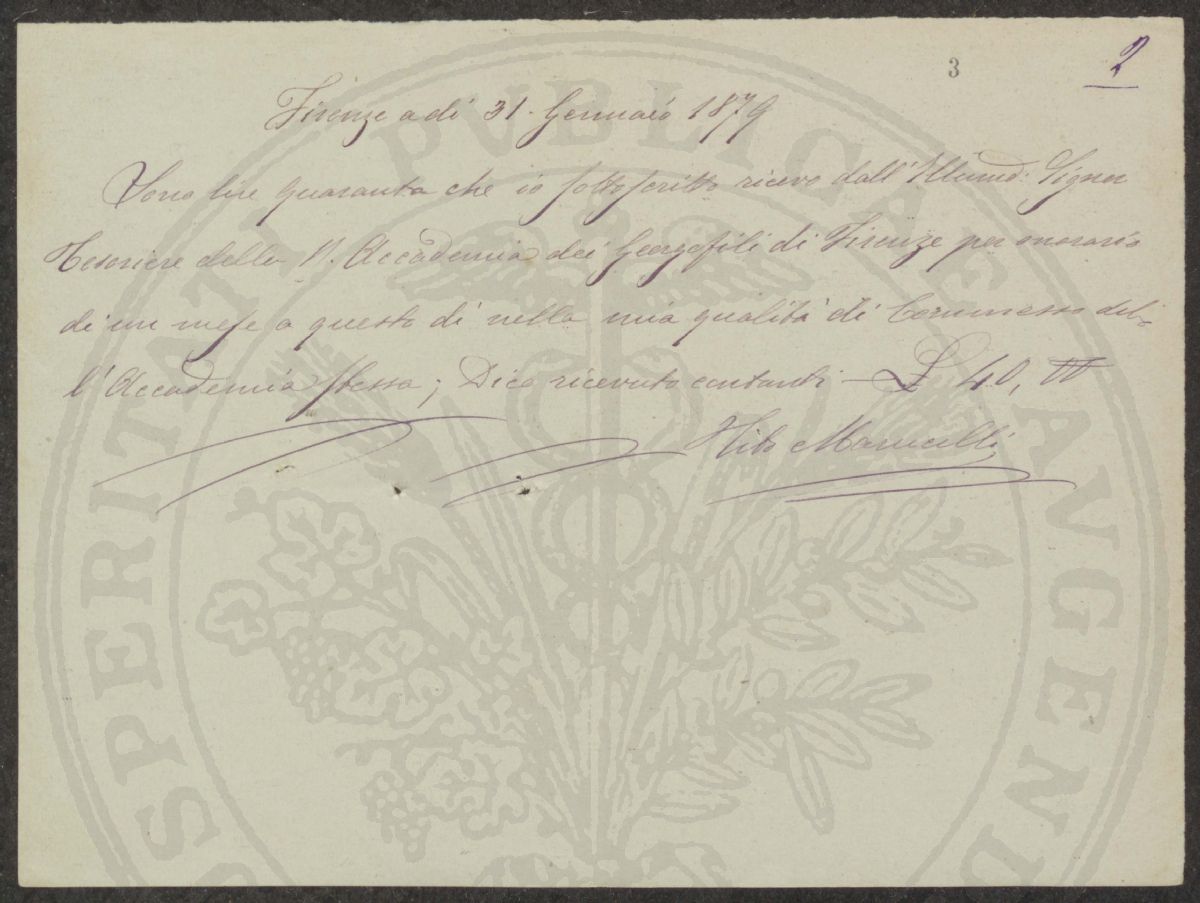 3
2
Firenze a dì 31. Gennaio 1879
Sono lire quaranta che io sottoscritto ricevo dall' Illumo: Signor
Tesoriere della R. Accademia dei Georgofili di Firenze per onorario
di un mese a questo dì nella mia qualità di Commesso del-
l'Accademia stessa; Dico ricevuto contanti — £ 40,
PROSPERITATI PVBLICAE AVGENDAE